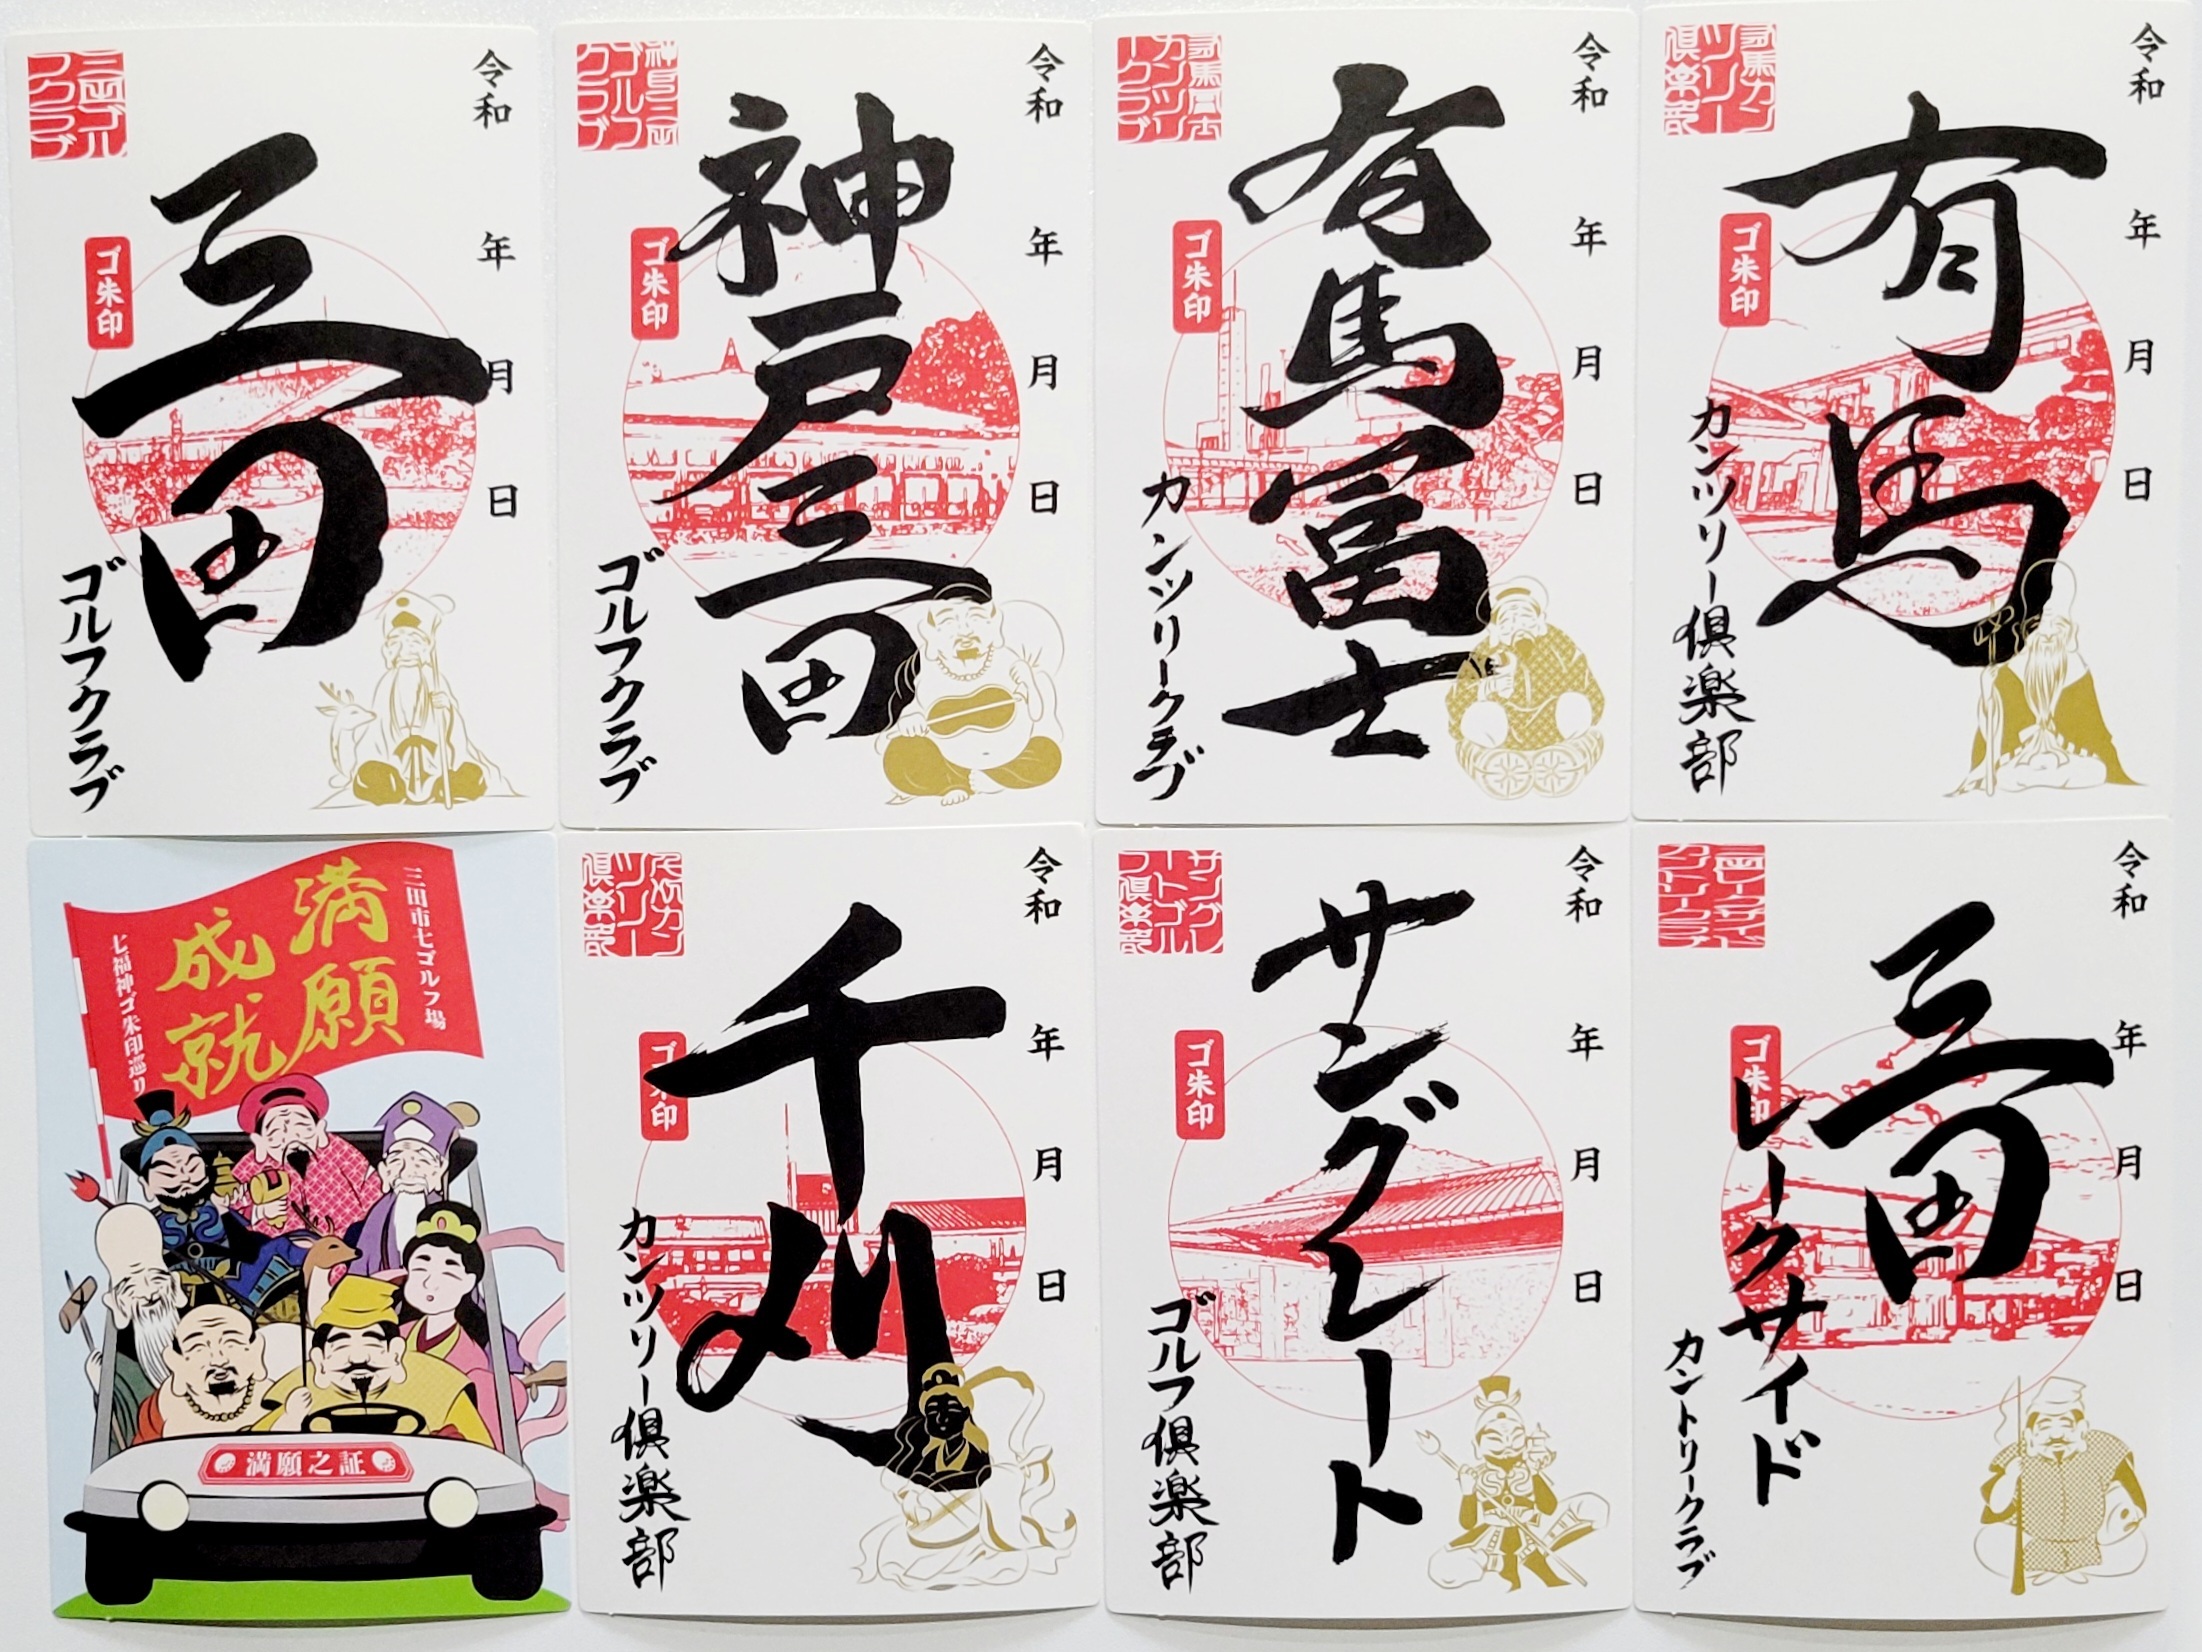 三田ゴルフクラブ
令和 年 月 日
ゴ朱印
三田
ゴルフクラブ
神戸三田ゴルフクラブ
令和 年 月 日
ゴ朱印
神戸三田
ゴルフクラブ
有馬冨士カンツリークラブ
令和 年 月 日
ゴ朱印
有馬冨士
カンツリークラブ
有馬カンツリー倶楽部
令和 年 月 日
ゴ朱印
有馬
カンツリー倶楽部
三田市七ゴルフ場
満願
成就
七福神ゴ朱印巡り
満願之証
千刈カンツリー倶楽部
令和 年 月 日
ゴ朱印
千刈
カンツリー倶楽部
サングレートゴルフ倶楽部
令和 年 月 日
ゴ朱印
サングレート
ゴルフ倶楽部
三田レークサイドカントリークラブ
令和 年 月 日
ゴ朱印
三田
レークサイド
カントリークラブ